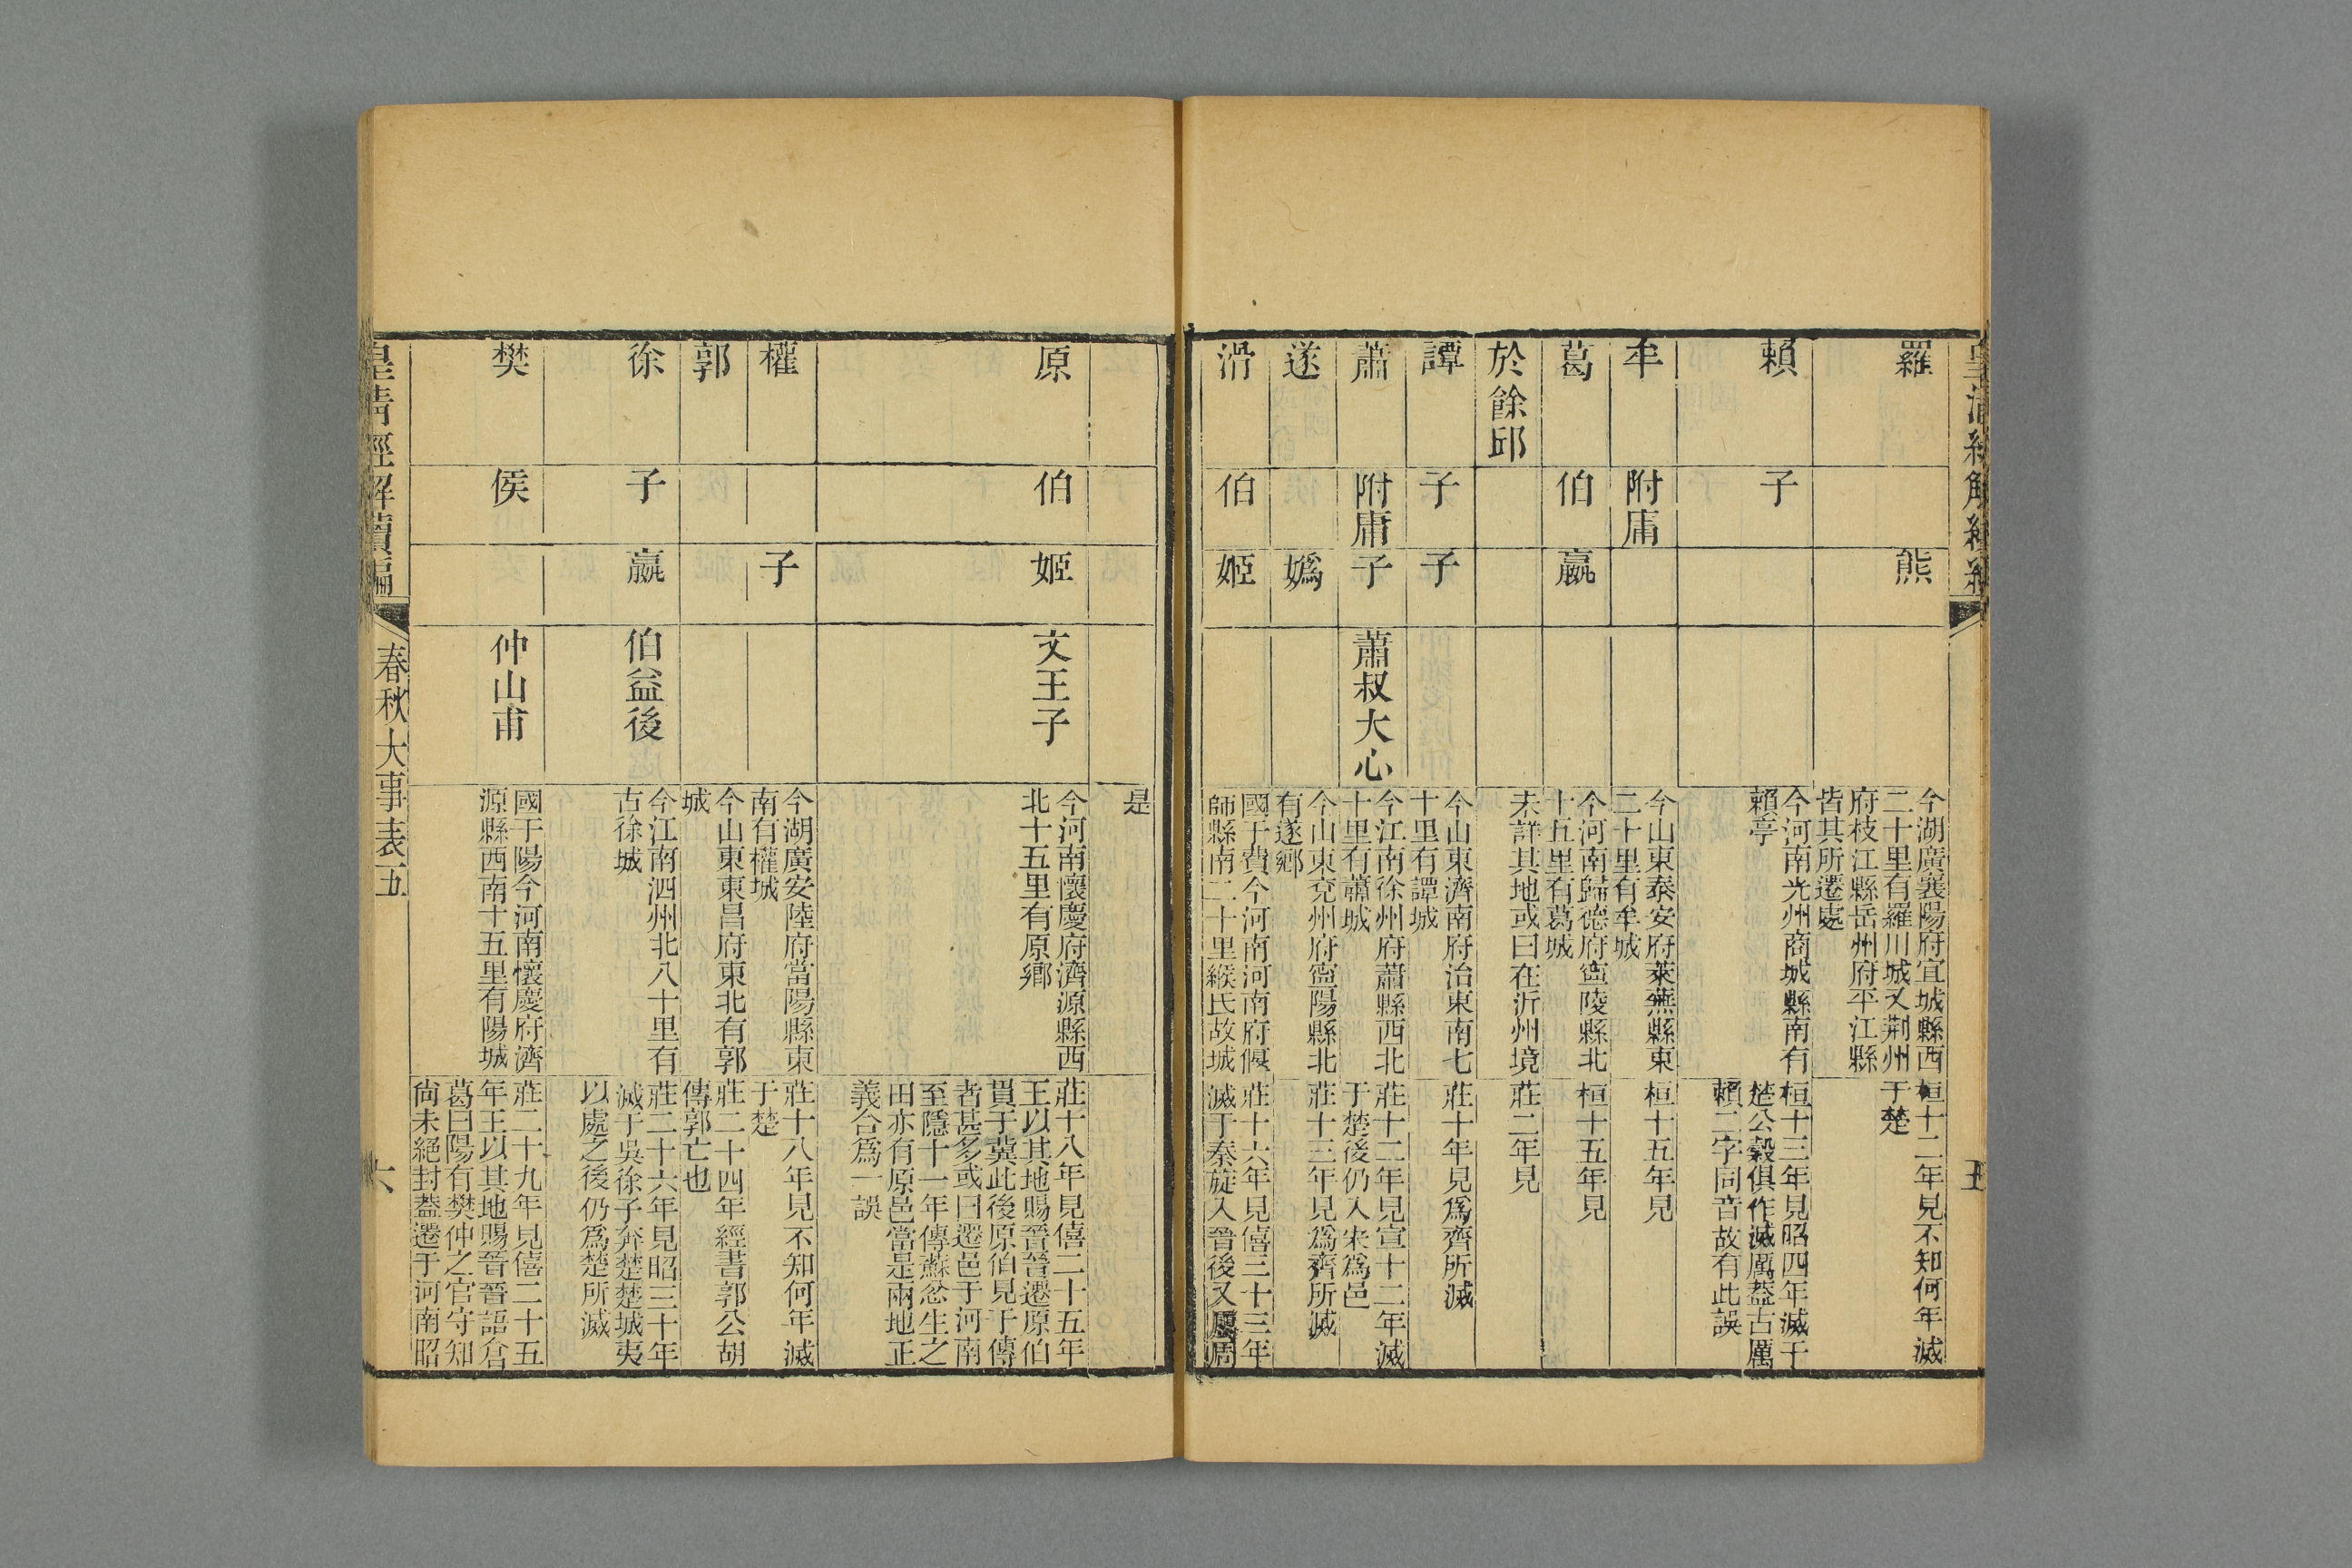 羅
熊
今湖廣襄陽府宜城縣西
二十里有羅川城又荆州
府枝江縣岳州府平江縣
皆其所遷處
桓十二年見不知何年滅
于楚
賴
子
今河南光州商城縣南有
賴亭
桓十三年見昭四年滅于
楚公穀俱作滅厲蓋古厲
賴二字同音故有此誤
牟
附庸
今山東泰安府萊蕪縣東
二十里有牟城
桓十五年見
葛
伯
嬴
今河南歸德府寧陵縣北
十五里有葛城
桓十五年見
於餘邱
未詳其地或曰在沂州境
莊二年見
譚
子
子
今山東濟南府治東南七
十里有譚城
莊十年見爲齊所滅
蕭
附庸
子
蕭叔大心
今江南徐州府蕭縣西北
十里有蕭城
莊十二年見宣十二年滅
于楚後仍入宋爲邑
遂
嬀
今山東兗州府寧陽縣北
有遂鄉
莊十三年見爲齊所滅
滑
伯
姬
國于費今河南河南府偃
師縣南二十里緱氏故城
莊十六年見僖三十三年
滅于秦旋入晉後又屬周
是
原
伯
姬
文王子
今河南懷慶府濟源縣西
北十五里有原鄉
莊十八年見僖二十五年
王以其地賜晉晉遷原伯
貫于冀此後原伯見于傳
者甚多或曰遷邑于河南
至隱十一年傳蘇忿生之
田亦有原邑當是兩地正
義合爲一誤
權
子
今湖廣安陸府當陽縣東
南有權城
莊十八年見不知何年滅
于楚
郭
今山東東昌府東北有郭
城
莊二十四年經書郭公胡
傳郭亡也
徐
子
嬴
伯益後
今江南泗州北八十里有
古徐城
莊二十六年見昭三十年
滅于吳徐子奔楚楚城夷
以處之後仍爲楚所滅
樊
侯
仲山甫
國于陽今河南懷慶府濟
源縣西南十五里有陽城
莊二十九年見僖二十五
年王以其地賜晉晉語倉
葛曰陽有樊仲之官守知
尙未絕封蓋遷于河南昭
皇清經解續編
春秋大事表五
六